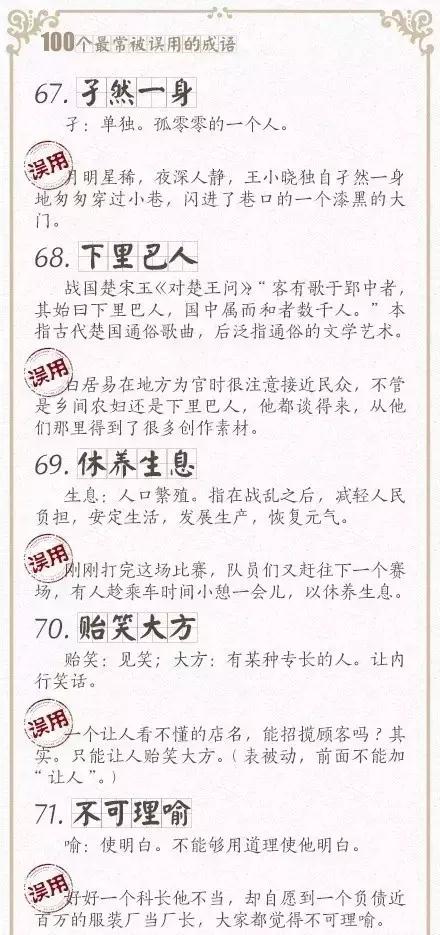 100个最常被误用的成语
67. 孑然一身
孑：单独。孤零零的一个人。
误用
月明星稀，夜深人静，王小晓独自孑然一身
地匆匆穿过小巷，闪进了巷口的一个漆黑的大
门。
68. 下里巴人
战国楚宋玉《对楚王问》“客有歌于郢中者，
其始曰下里巴人，国中属而和者数千人。”本
指古代楚国通俗歌曲，后泛指通俗的文学艺术。
误用
白居易在地方为官时很注意接近民众，不管
是乡间农妇还是下里巴人，他都谈得来，从他
们那里得到了很多创作素材。
69. 休养生息
生息：人口繁殖。指在战乱之后，减轻人民
负担，安定生活，发展生产，恢复元气。
误用
刚刚打完这场比赛，队员们又赶往下一个赛
场，有人趁乘车时间小憩一会儿，以休养生息。
70. 贻笑大方
贻笑：见笑；大方：有某种专长的人。让内
行笑话。
误用
一个让人看不懂的店名，能招揽顾客吗？其
实。只能让人贻笑大方。（表被动，前面不能加
“让人”。）
71. 不可理喻
喻：使明白。不能够用道理使他明白。
误用
好好一个科长他不当，却自愿到一个负债近
百万的服装厂当厂长，大家都觉得不可理喻。